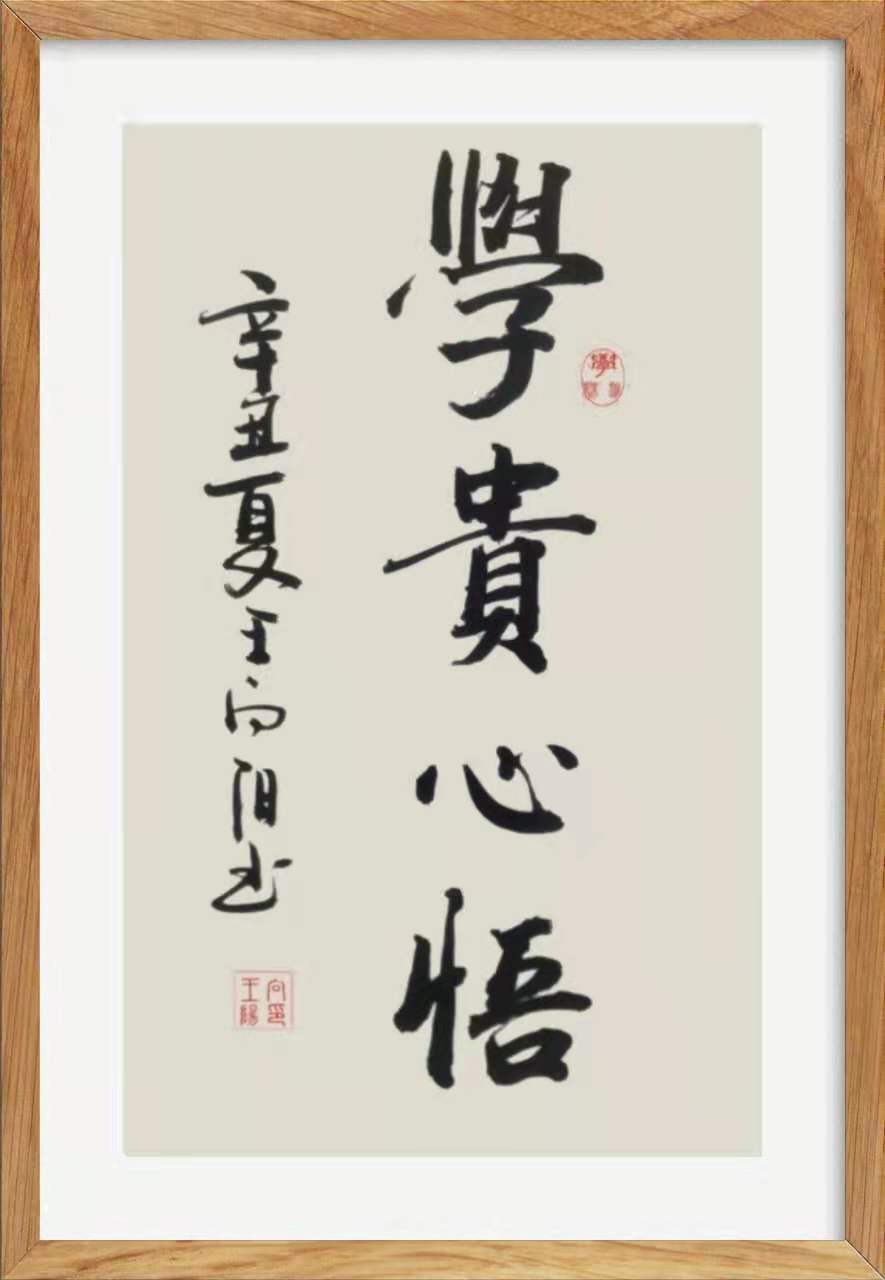 學貴心悟
辛丑夏王向阳书
王向陽印